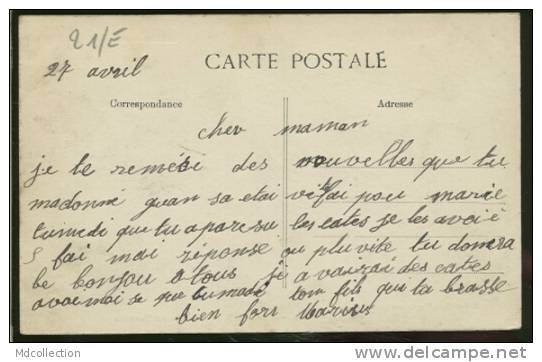 21/E
27 avril
CARTE POSTALE
Correspondance
Adresse
cher maman
je te remèci des nouvelles que tu
madonné quan sa etai pou marie
tumedi que tu a pa resu les cates je les avoié
fai moi réponse ou plu vite tu donera
be bonjou a tous je a vairai des cates
avoi moi se que tu made ton fils qui ta brasse
bien fors Marius
Mdcollection
www.delcampe.net